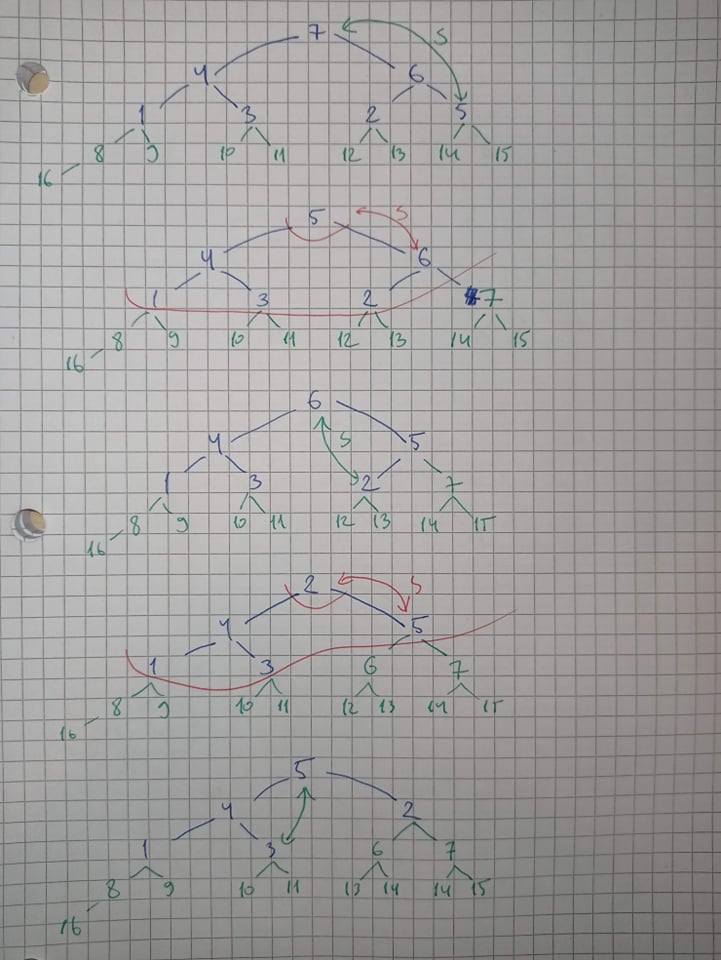 7 S
4 6
1 3 2 5
8 9 10 11 12 13 14 15
16
5 S
4 6
1 3 2 7
8 9 10 11 12 13 14 15
16
6
4 S 5
1 3 2 7
8 9 10 11 12 13 14 15
16
2 S
4 5
1 3 6 7
8 9 10 11 12 13 14 15
16
5
4 2
1 3 6 7
8 9 10 11 13 14 14 15
16